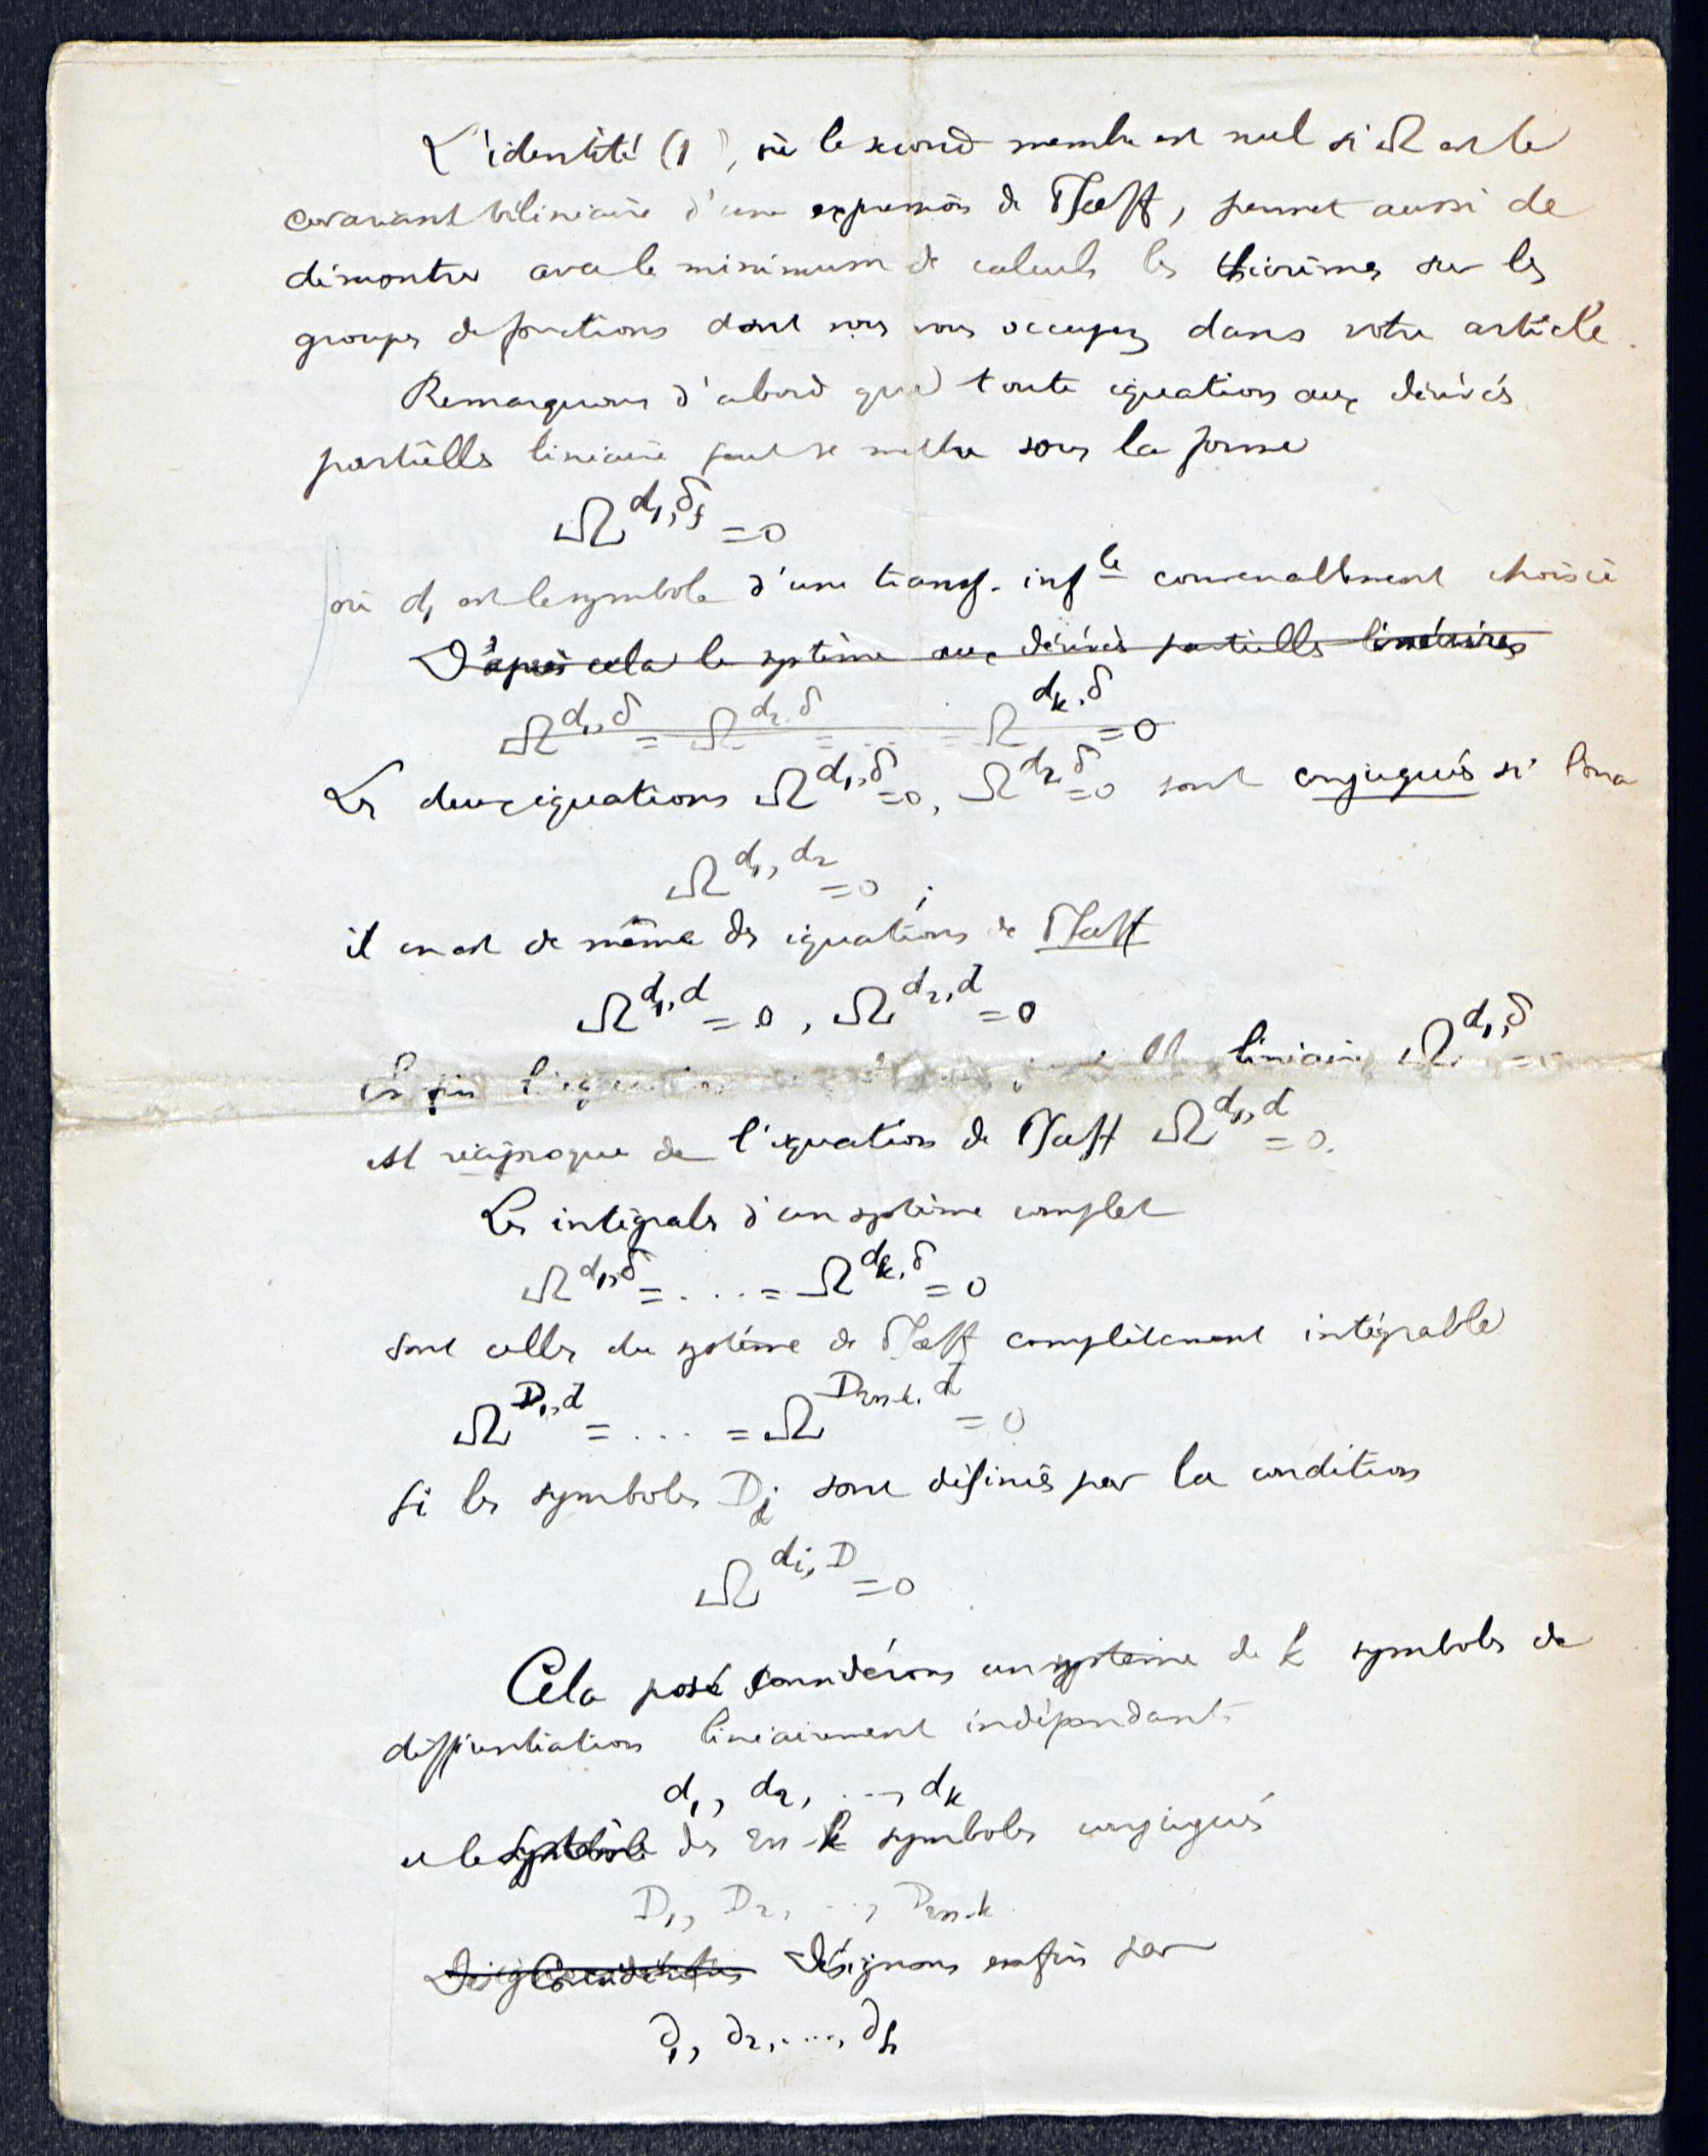 L'identité (1), où le second membre est nul si Ω est le
covariant bilinéaire d'une expression de Pfaff, permet aussi de
démontrer avec le minimum de calculs les théorèmes sur les
groupes de fonctions dont vous vous occupez dans votre article.
Remarquons d'abord que toute équation aux dérivées
partielles linéaire peut se mettre sous la forme
Ω^{d₁,δ_f} = 0
où d₁ est le symbole d'une transf. inf^{le} convenablement choisie
D'après cela le système aux dérivées partielles linéaires
Ω^{d₁,δ} = Ω^{d₂,δ} = ... = Ω^{d_k,δ} = 0
Les deux équations Ω^{d₁,δ} = 0, Ω^{d₂,δ} = 0 sont conjuguées si l'on a
Ω^{d₁,d₂} = 0 ;
il en est de même des équations de Pfaff
Ω^{d₁,d} = 0, Ω^{d₂,d} = 0
linéaire Ω^{d₁,δ} = 0
est réciproque de l'équation de Pfaff Ω^{d₁,d} = 0.
Les intégrales d'un système complet
Ω^{d₁,δ} = ... = Ω^{d_k,δ} = 0
sont celles du système de Pfaff complètement intégrable
Ω^{D₁,d} = ... = Ω^{D_{2n-k},d} = 0
si les symboles D_j sont définis par la condition
Ω^{d_i,D} = 0
Cela posé considérons un système de k symboles de
différentiation linéairement indépendants
d₁, d₂, ..., d_k
et le système des 2n-k symboles conjugués
D₁, D₂, ..., D_{2n-k}
Désignons enfin par
∂₁, ∂₂, ..., ∂_h